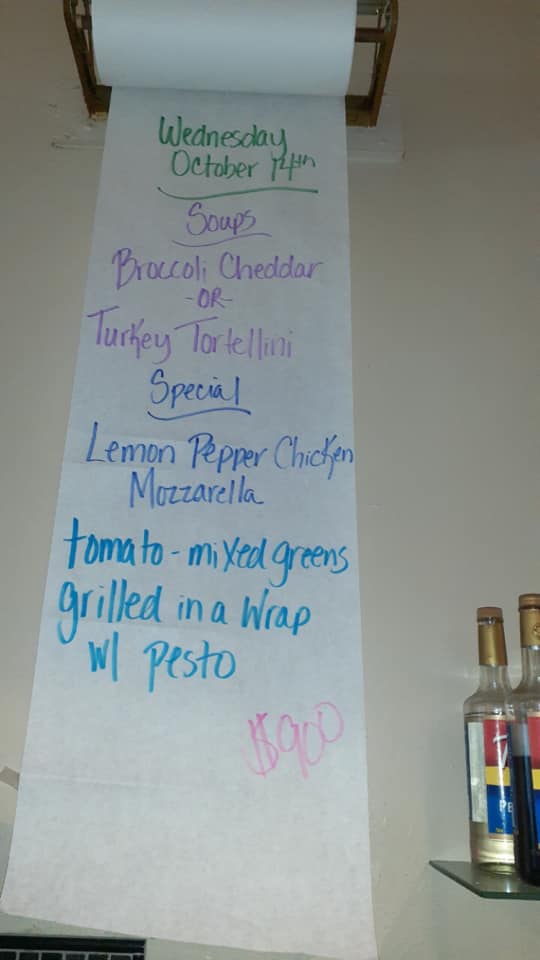 Wednesday
October 14th
Soups
Broccoli Cheddar
-OR-
Turkey Tortellini
Special
Lemon Pepper Chicken
Mozzarella
tomato - mixed greens
grilled in a wrap
w/ pesto
$900